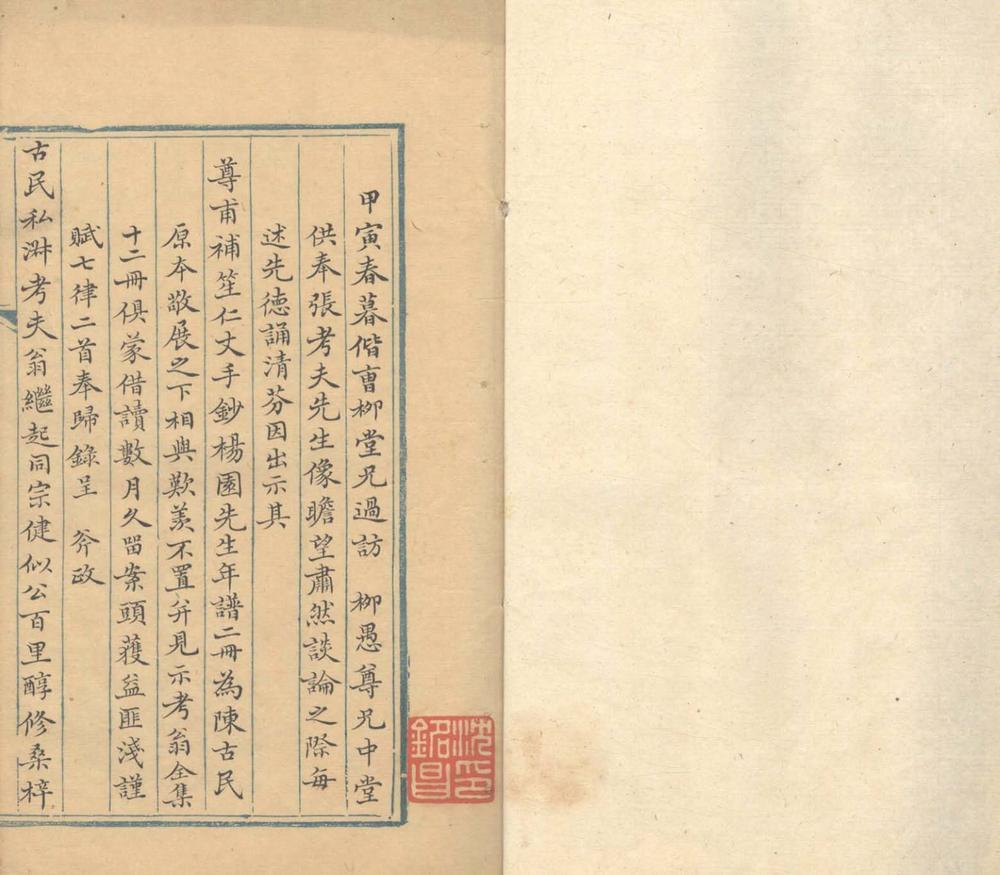 甲寅春暮偕曺柳堂兄過訪　柳愚尊兄中堂
供奉張考夫先生像瞻望肅然談論之際每
述先德誦清芬因出示其
尊甫補笙仁丈手鈔楊園先生年譜二冊為陳古民
原本敬展之下相與歎羨不置并見示考翁全集
十二冊俱蒙借讀數月久留案頭獲益匪淺謹
賦七律二首奉歸錄呈　斧政
古民私淑考夫翁繼起同宗健似公百里醇修桑梓
沈印銘昌